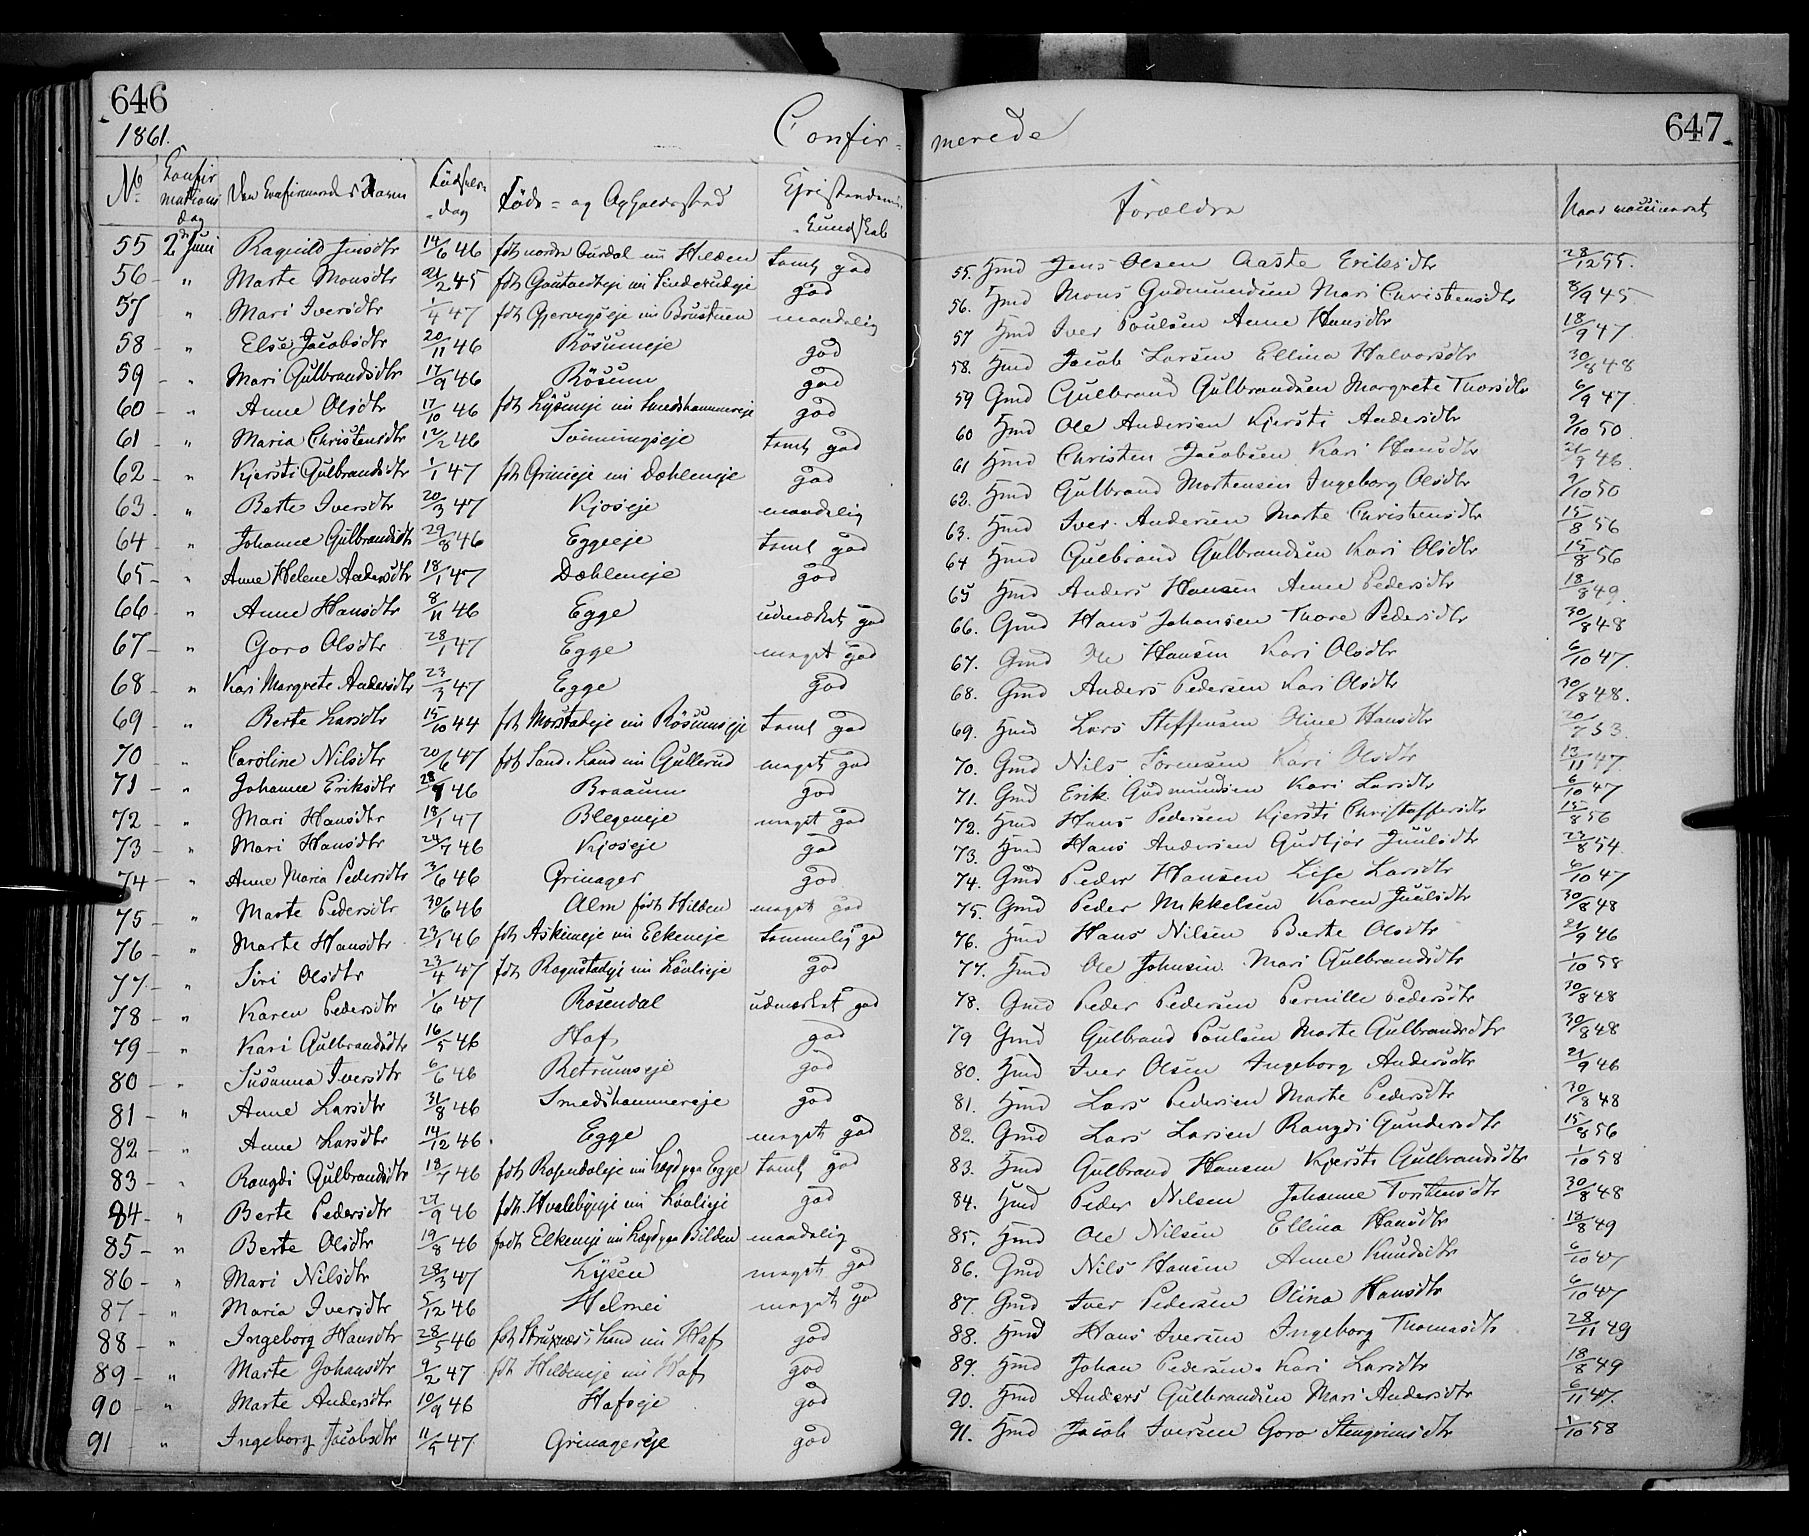 646
1861.
Confir-
No Confirmations dag Den Confirmeredes Navn Fødselsdag Føde- og Opholdssted Christendoms Kundskab
55 2den Juni Ragnild Jensdtr 14/6 46 fdt nordre Aurdal nu Hilden tamt god
56 - " Marte Monsdtr 21/2 45 god
57 " Mari Iversdtr 1/4 47 maadelig
58 - " Else Jacobsdtr 20/11 46 Rösumeje god
59 - " Mari Gulbrandsdtr 17/9 46 Rösum god
60 - " Anne Olsdtr 17/10 46 fdt Lÿseneje nu Smedshammereje god
61 " Maria Christensdtr 12/2 46 tamt god
62 - " Kjersti Gulbrandsdtr 1/1 47 fdt Grimeje nu Dæhleneje god
63. " Berte Iversdtr 20/3 47 Kjoseje maadelig
64 - " Johanne Gulbrandsdtr 29/8 46 Eggeeje tamt god
65 - " Anne Helene Andersdtr 18/1 47 Dæhleneje god
66 - " Anne Hansdtr 8/11 46 Egge udmærket god
67 - " Goro Olsdtr 28/1 47 Egge meget god
68 - " Kari Margrete Andersdtr 23/3 47 Egge god
69 - " Berte Larsdtr 15/10 44 fdt Morstadeje nu Rösumseje tamt god
70 " Caroline Nilsdtr 20/6 47 fdt Sand. Land nu Gullerud meget god
71 " Johanne Eriksdtr 28/9 46 Braaum god
72 - " Mari Hansdtr 18/1 47 Blegeneje meget god
73 - " Mari Hansdtr 24/7 46 Kjoseje god
74 - " Anne Maria Pedersdtr 3/6 46 Grinager god
75 - " Marte Pedersdtr 30/6 46 Alm født Hilden meget god
76 - " Marte Hansdtr 23/1 46 fdt Askimeje nu Elkeneje temmelig god
77 - " Siri Olsdtr 23/4 47 fdt Rognstadeje nu Lövlieje god
78 - " Karen Pedersdtr 1/6 47 Rosendal udmærket god
79 - " Kari Gulbrandsdtr 16/5 46 Hof god
80 - " Susanna Iversdtr 6/6 46 Retrumseje god
81 - " Anne Larsdtr 31/8 46 Smedshammereje god
82 - " Anne Larsdtr 14/12 46. Egge meget god
83 - " Rangdi Gulbrandsdtr 18/7 46 fdt Rosendaleje nu Lægd paa Egge tamt god
84 - " Berte Pedersdtr 27/9 46 fdt. Hvalebÿeje nu Lövlieje god
85 - " Berte Olsdtr 19/8 46 født Elkeneje nu Lægd paa Bilden maadelig
86 - " Mari Nilsdtr 28/3 47 Lÿsen meget god
87 - " Maria Iversdtr 5/12 46 Helmei meget god
88 - " Ingeborg Hansdtr 28/5 46 fdt Struxnæs i Land nu Hof god
89 - " Marte Johansdtr 9/2 47 fdt Hildeneje nu Hof god
90 - " Marte Andersdtr 10/9 46 Hofseje god
91 - " Ingeborg Jacobsdtr 11/5 47 Grinagereje god
647.
merede
Forældre Naar vaccineret
55. Hmd Jens Olsen Aaste Eriksdtr 28/12 55.
56. Hmd Mons Gudmundsen Mari Christensdtr 8/9 45
57 Hmd Iver Poulsen Anne Hansdtr 18/9 47.
58. Hmd Jacob Larsen Ellina Halvorsdtr 30/8 48
59 Gmd Gulbrand Gulbrandsen Margrete Thorsdtr 6/9 47.
60 Hmd Ole Andersen Kjersti Andersdtr 9/10 50.
61 Hmd Christen Jacobsen Kari Hansdtr 21/9 46.
62. Hmd Gulbrand Mortensen Ingeborg Olsdtr 9/10 50
63. Hmd Iver Andersen Marte Christensdtr 15/8 56
64 Hmd Gulbrand Gulbrandsen Kari Olsdtr 15/8 56
65 Hmd Anders Hansen Anne Pedersdtr 18/8 49.
66. Gmd Hans Johansen Thore Pedersdtr 30/8 48
67. Gmd Ole Hansen Kari Olsdtr 6/10 47.
68. Gmd Anders Pedersen Kari Olsdtr 30/8 48.
69. Hmd Lars Steffensen Oline Hansdtr 20/7 53.
70. Gmd Nils Sörensen Kari Olsdtr 13/11 47.
71. Gmd Erik Gudmundsen Kari Larsdtr 6/10 47
72. Hmd Hans Pedersen Kjersti Christoffersdtr 15/8 56
73. Hmd Hans Andersen Gudbjør Juulsdtr 23/8 54.
74. Gmd Peder Hansen Lise Larsdtr 6/10 47
75. Gmd Peder Mikkelsen Karen Juulsdtr 30/8 48
76. Hmd Hans Nilsen Berte Olsdtr 21/9 46
77. Hmd Ole Johnsen Mari Gulbrandsdtr 1/10 58
78. Gmd Peder Pedersen Pernille Pedersdtr 30/8 48
79 Gmd Gulbrand Poulsen Marte Gulbrandsdtr 30/8 48
80. Hmd Iver Olsen Ingeborg Andersdtr 21/9 46
81. Hmd Lars Pedersen Marte Pedersdtr 30/8 48
82. Gmd Lars Larsen Rangdi Gundersdtr 15/8 56
83. Hmd Gulbrand Hansen Kjersti Gulbrandsdtr 1/10 58
84. Hmd Peder Nilsen Johanne Torstensdtr 30/8 48
85. Hmd Ole Nilsen Ellina Hansdtr 18/8 49
86. Gmd Nils Hansen Anne Knudsdtr 6/10 47
87. Gmd Iver Pedersen Olina Hansdtr 6/10 47
88. Hmd Hans Iversen Ingeborg Thomasdtr 28/11 49
89. Hmd Johan Pedersen Kari Larsdtr 18/8 49
90. Hmd Anders Gulbrandsen Mari Andersdtr 6/11 47.
91. Hmd Jacob Iversen Goro Stengrimsdtr 1/10 58